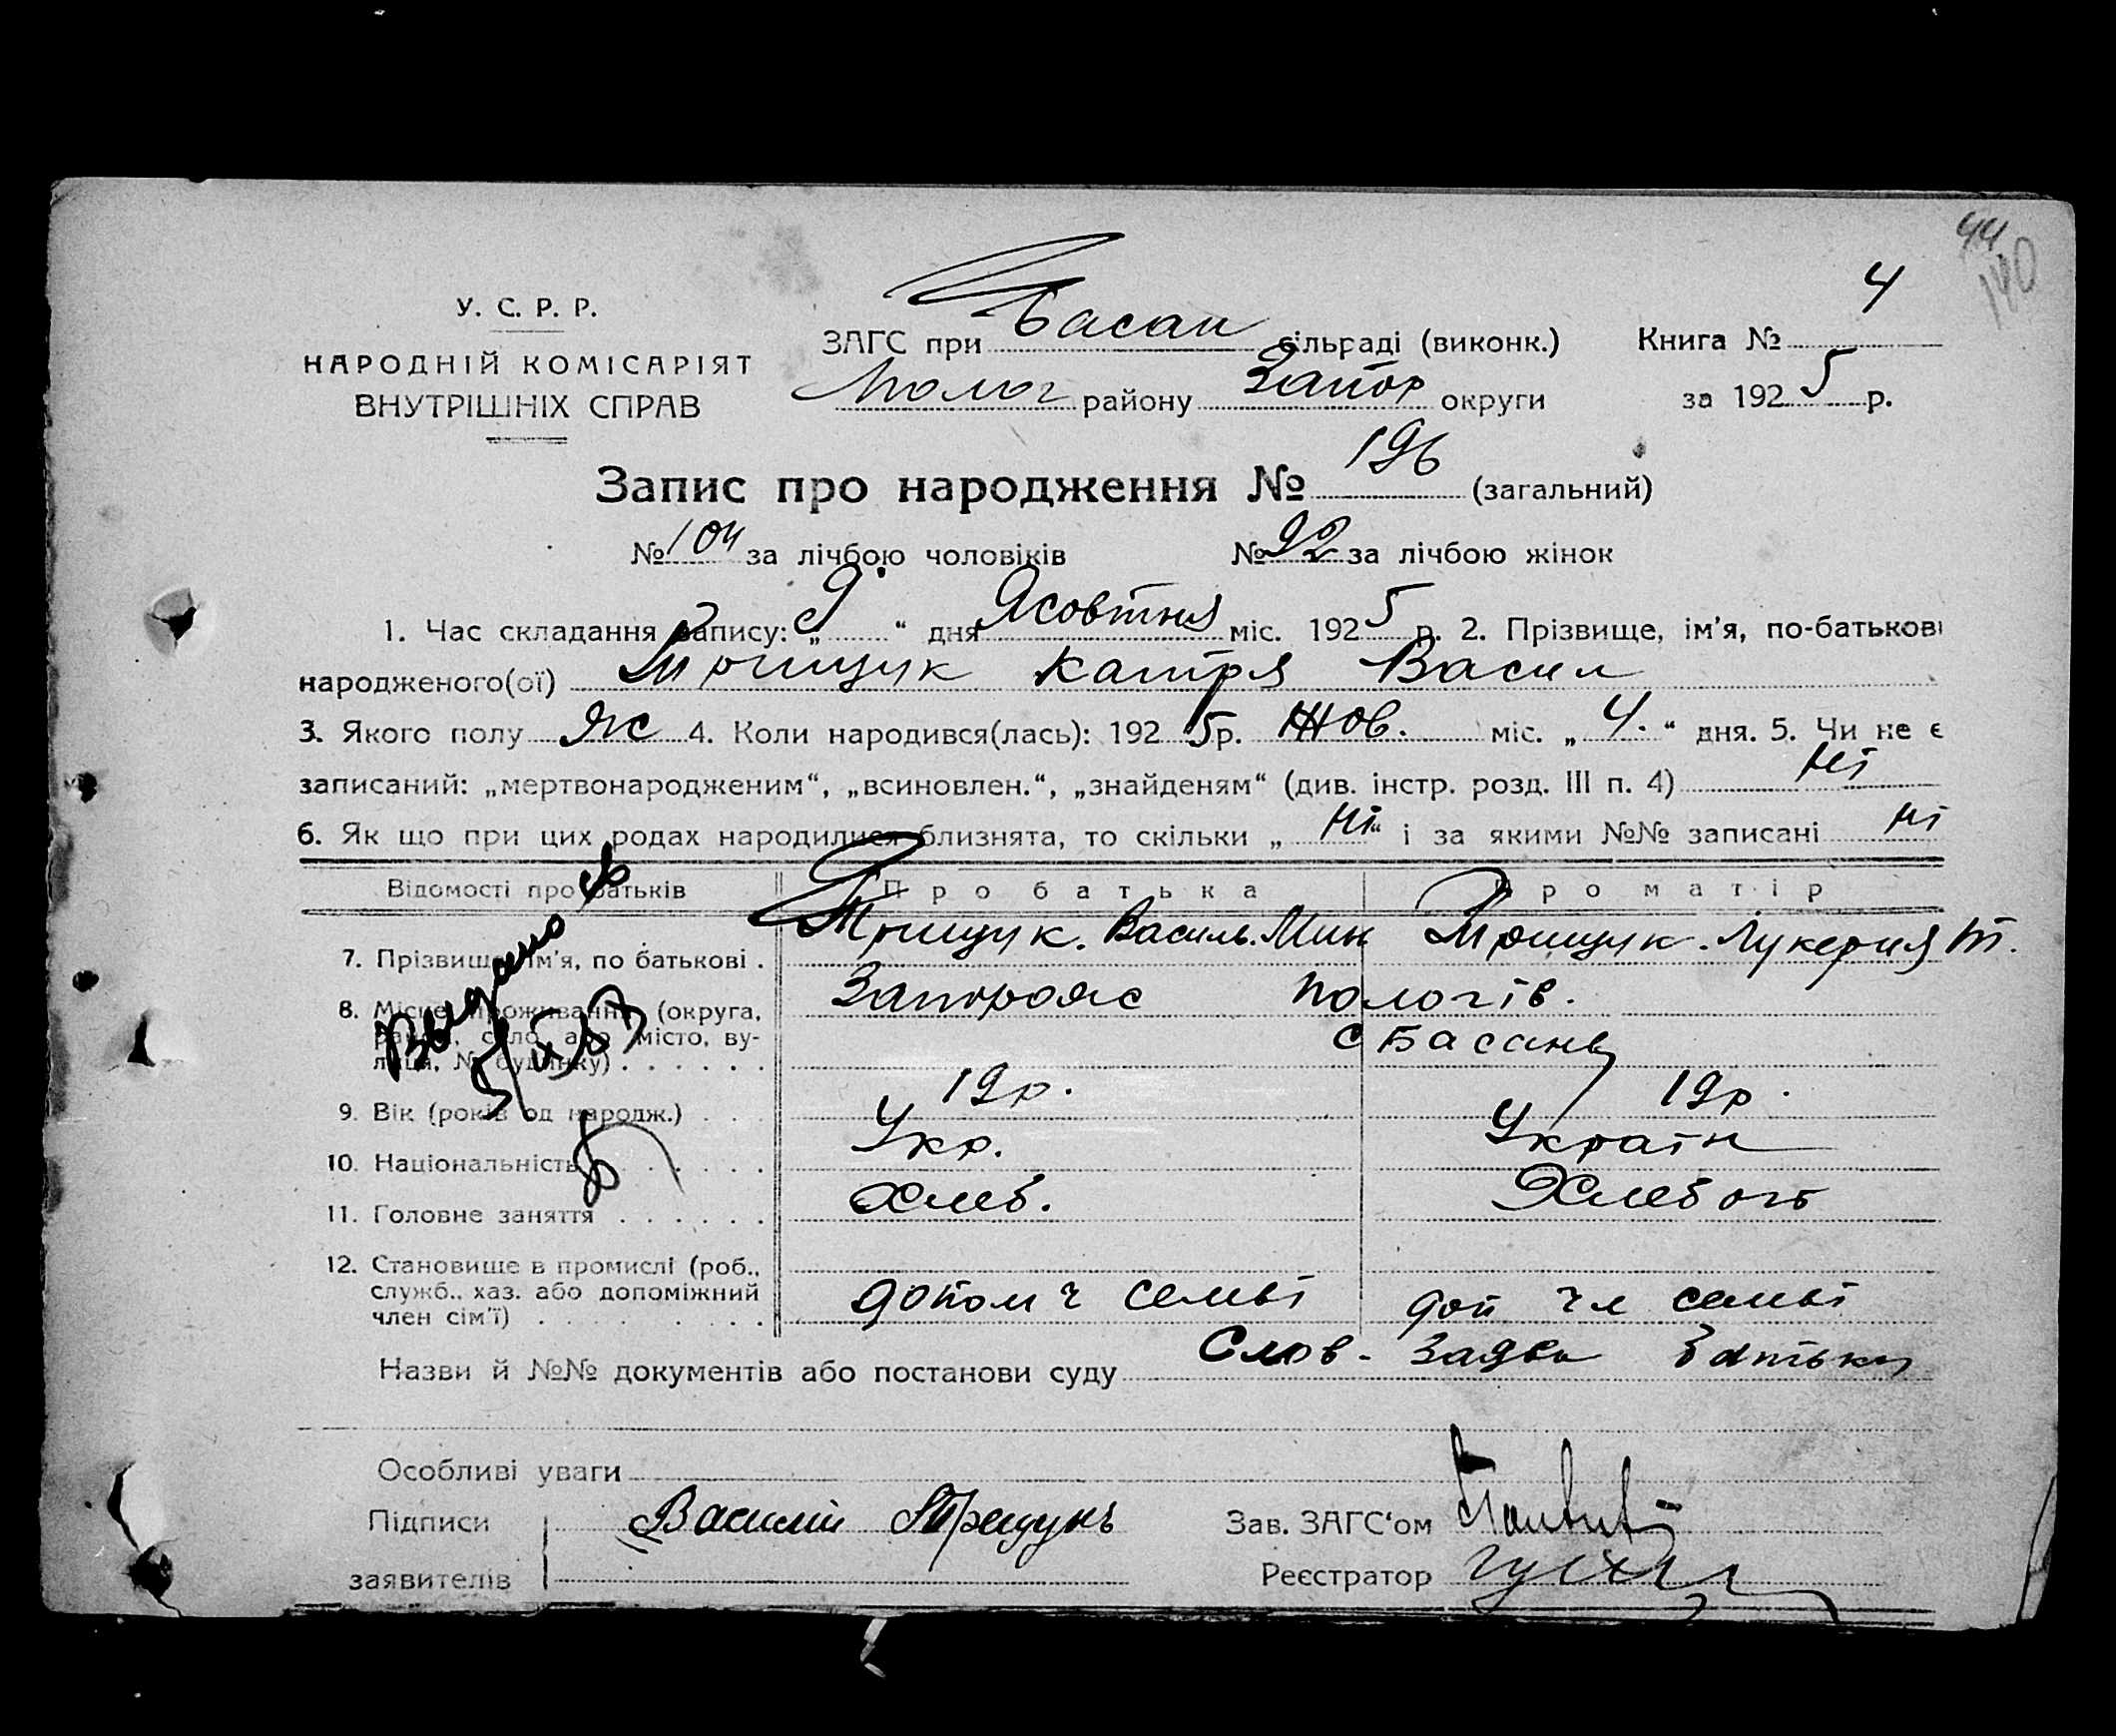 44
140
У. С. Р. Р.
НАРОДНІЙ КОМІСАРІЯТ
ВНУТРІШНІХ СПРАВ
ЗАГС при Басан сільраді (виконк.)
Полог району Запор округи
Книга № 4
за 1925 р.
Запис про народження № 196 (загальний)
№ 104 за лічбою чоловіків № 92 за лічбою жінок
1. Час складання запису: „ 9 “ дня Жовтня міс. 1925 р. 2. Прізвище, ім'я, по-батькові
народженого(ої) Трищук Катря Васил
3. Якого полу ж 4. Коли народився(лась): 1925 р. Жов. міс. „ 4. “ дня. 5. Чи не є
записаний: „мертвонародженим“, „всиновлен.“, „знайденям“ (див. інстр. розд. III п. 4) Ні
6. Як що при цих родах народилися близнята, то скільки „ Ні “ і за якими №№ записані Ні
Відомості про батьків Про батька Про матір
7. Прізвище, ім'я, по батькові . Трищук. Василь. Мин Трищук. Лукерия Т.
8. Місце проживання (округа, Запорож Пологів.
район, село, або місто, ву- с Басань
лиця, № будинку) . . . . . .
9. Вік (років од народж.) . . . 19 р. 19 р.
10. Національність . . . . . Укр. Україн
11. Головне заняття . . . . . . Хлеб. Хлебоч
12. Становище в промислі (роб.,
служб., хаз. або допоміжний допом ч семьі доп чл семьі
член сім'ї) . . . . . . . .
Выдано св
Назви й №№ документів або постанови суду Слов. Заява Батька
Особливі уваги
Підписи Василий Трищукъ Зав. ЗАГС'ом
заявителів Реєстратор